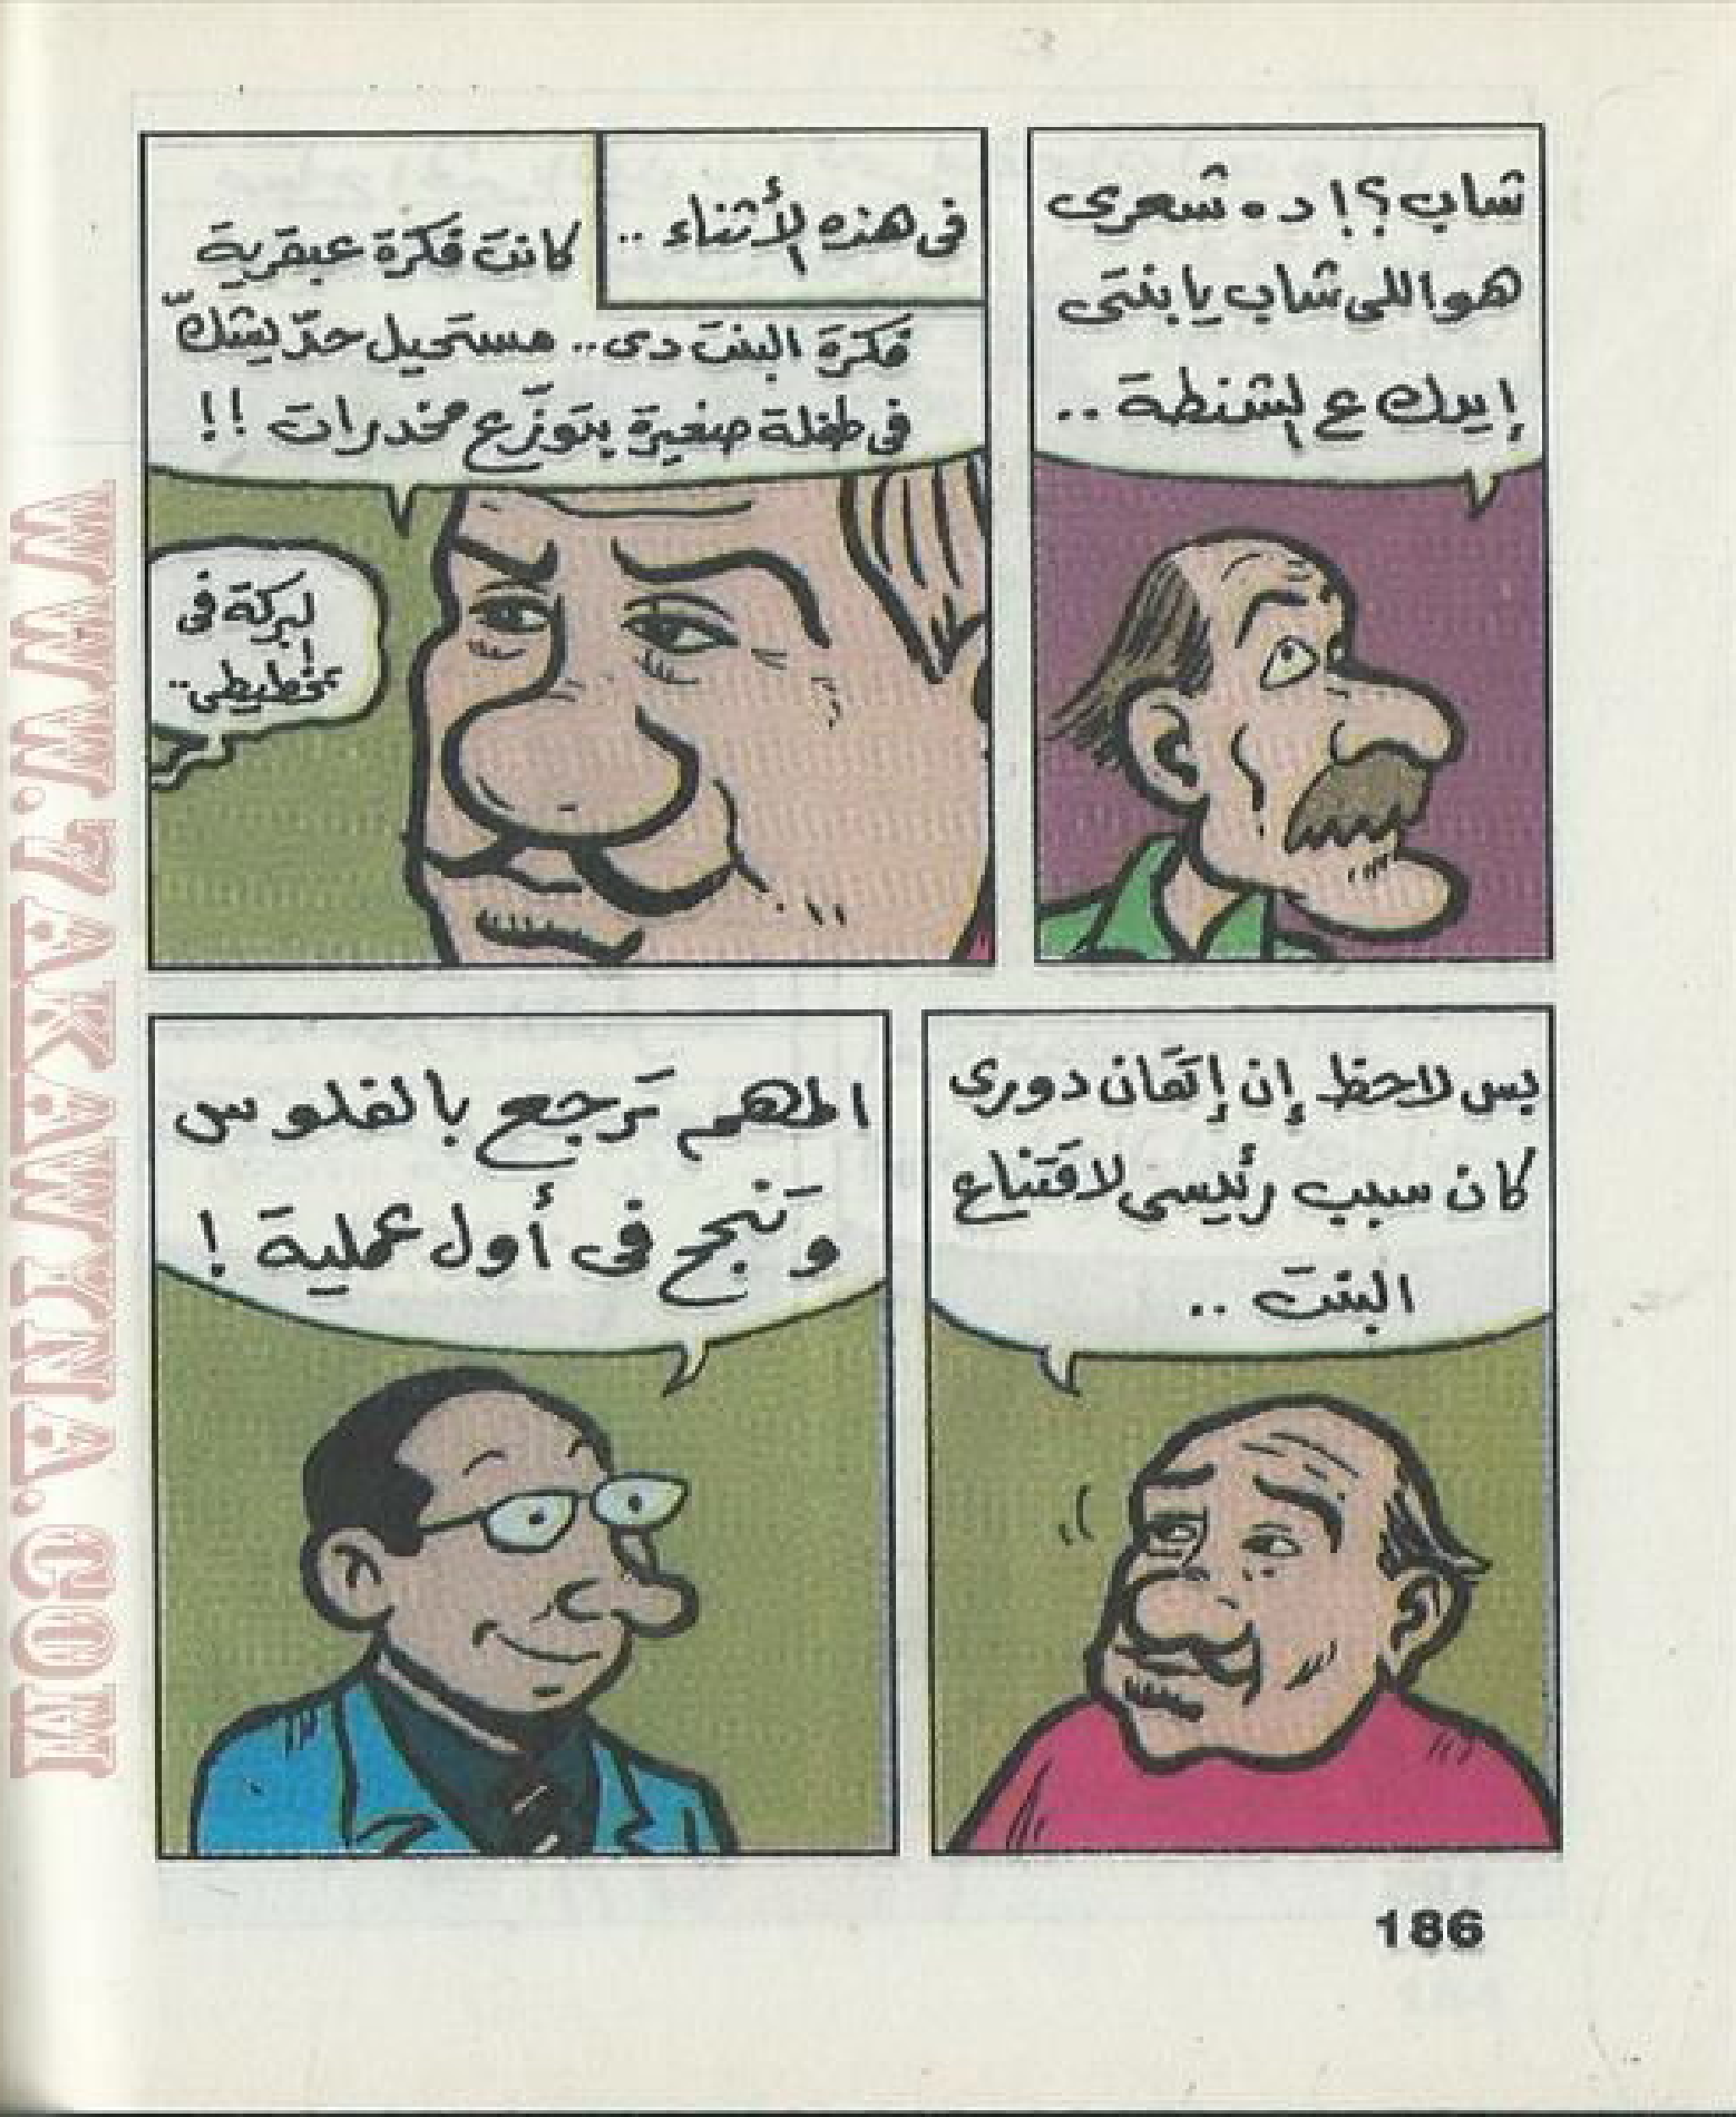 شاب؟! ده شعرى
هو اللى شاب يا بنتى
إيدك ع الشنطة ..
فى هذه الأثناء ..
كانت فكرة عبقرية
فكرة البنت دى .. مستحيل حدّ يشكّ
فى طفلة صغيرة بتوزّع مخدرات !!
البركة فى
تخطيطى ..
بس لاحظ إن إتقان دورى
كان سبب رئيسى لاقتناع
البنت ..
المهم تَرجع بالفلوس
وتَنجح فى أول عملية !
186
WWW.7AKAWITNA.COM